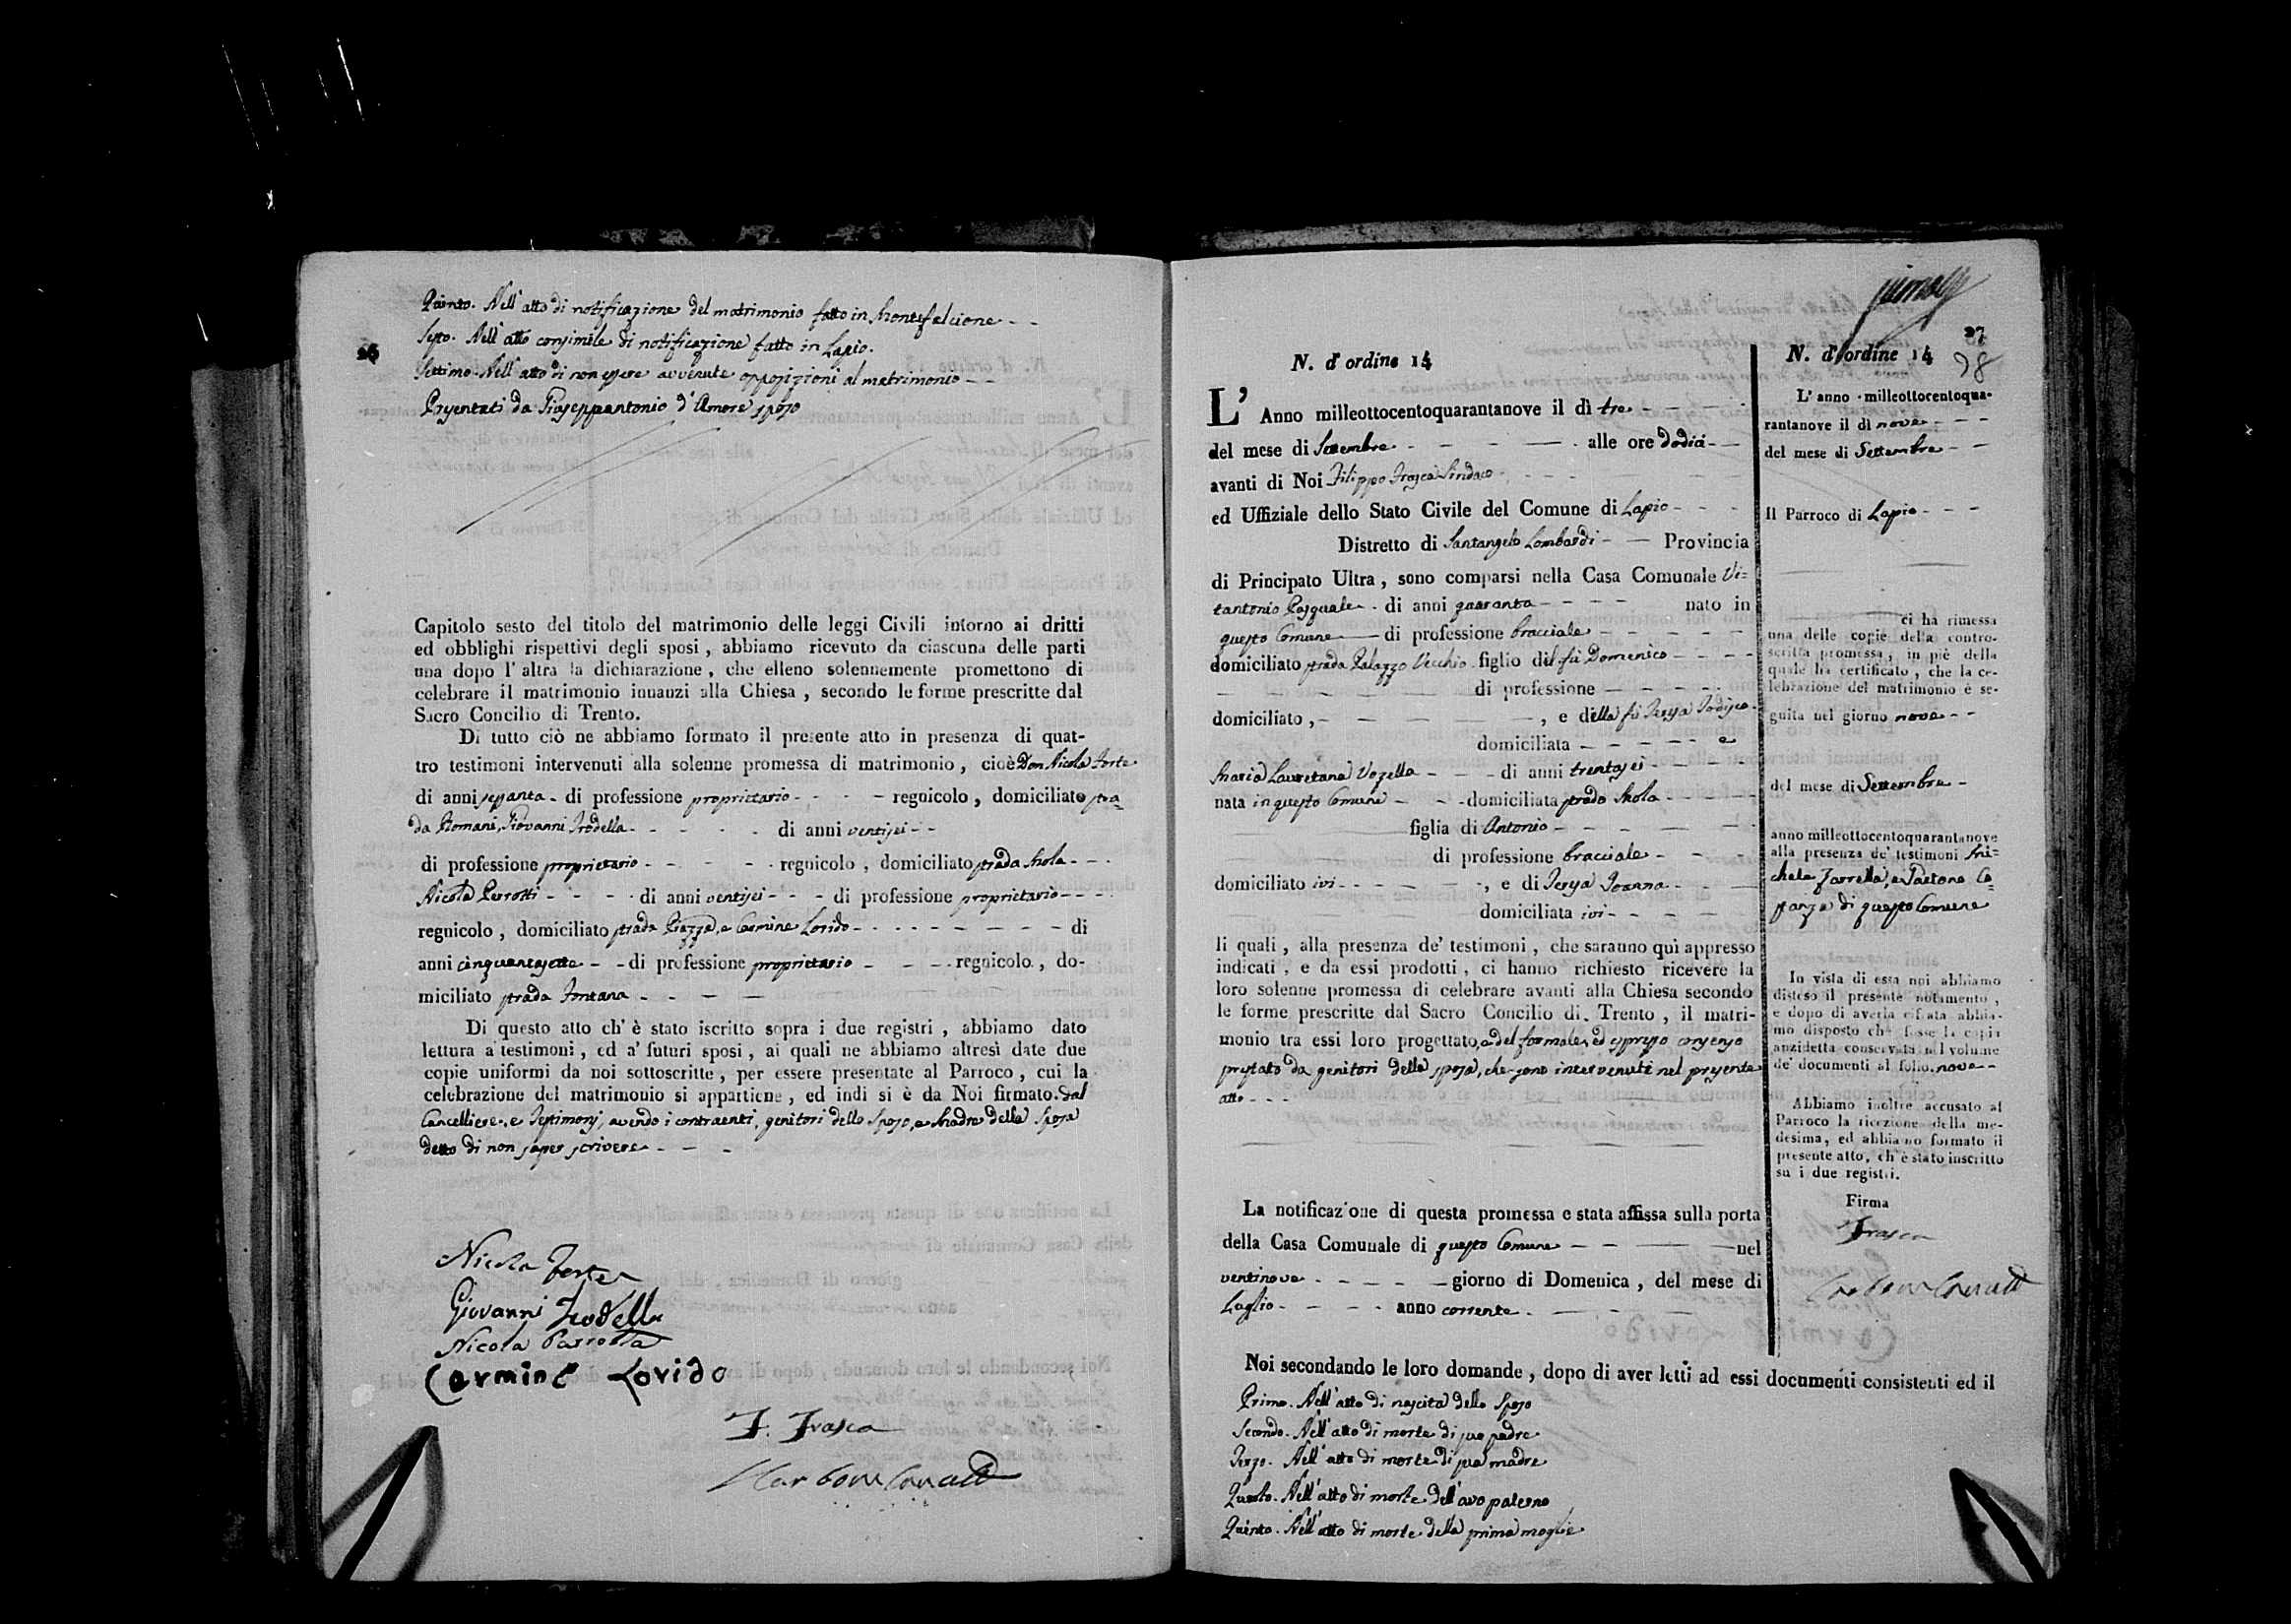 26
Quinto. Nell' atto di notificazione del matrimonio fatto in Montefalcione - -
Sesto. Nell' atto consimile di notificazione fatto in Lapio.
Settimo. Nell' atto di non essere avvenute opposizioni al matrimonio - -
Presentati da Giuseppantonio d' Amore sposo
Capitolo sesto del titolo del matrimonio delle leggi Civili intorno ai dritti
ed obblighi rispettivi degli sposi, abbiamo ricevuto da ciascuna delle parti
una dopo l' altra la dichiarazione, che elleno solennemente promettono di
celebrare il matrimonio innanzi alla Chiesa, secondo le forme prescritte dal
Sacro Concilio di Trento.
Di tutto ciò ne abbiamo formato il presente atto in presenza di quat-
tro testimoni intervenuti alla solenne promessa di matrimonio, cioè Don Nicola Forte
di anni sessanta - di professione proprietario - - - - regnicolo, domiciliato stra-
da Romani, Giovanni Trodella - - - - - di anni ventisei - -
di professione proprietario - - - - - regnicolo, domiciliato strada Mola - - -
Nicola Perrotti - - - - di anni ventisei - - - di professione proprietario - - - -
regnicolo, domiciliato strada Piazza, e Carmine Lorido - - - - - - - - di
anni cinquantasette - - di professione proprietario - - - regnicolo, do-
miciliato strada Fontana - - - -
Di questo atto ch' è stato iscritto sopra i due registri, abbiamo dato
lettura a' testimoni, ed a' futuri sposi, ai quali ne abbiamo altresì date due
copie uniformi da noi sottoscritte, per essere presentate al Parroco, cui la
celebrazione del matrimonio si appartiene, ed indi si è da Noi firmato. dal
Cancelliere, e Testimonj, avendo i contraenti, genitori dello Sposo, e Madre della Sposa
detto di non saper scrivere - - -
Nicola Forte
Giovanni Trodella
Nicola Parrotta
Carmine Lovido
F. Frasca
27
38
N. d' ordine 14
L' Anno milleottocentoquarantanove il dì tre - - - - -
del mese di Settembre - - - - - alle ore dodici - -
avanti di Noi Filippo Frasca Sindaco - - - -
ed Uffiziale dello Stato Civile del Comune di Lapio - - -
Distretto di Santangelo Lombardi - - Provincia
di Principato Ultra, sono comparsi nella Casa Comunale Vi=
tantonio Pasquale - di anni quaranta - - - - nato in
questo Comune - di professione bracciale - - - - -
domiciliato strada Palazzo Vecchio figlio del fù Domenico - - - -
- - - - - - di professione - - - - -
domiciliato, - - - - -, e della fù Teresa Todisco -
domiciliata - - - - - e
Maria Lauretana Vozella - - - di anni trentasei - - - -
nata in questo Comune - - - domiciliata strada Mola - - - -
figlia di Antonio - - - - - -
di professione bracciale - - -
domiciliato ivi - - - - - -, e di Teresa Ioanna - - -
domiciliata ivi - - - - -
li quali, alla presenza de' testimoni, che saranno qui appresso
indicati, e da essi prodotti, ci hanno richiesto ricevere la
loro solenne promessa di celebrare avanti alla Chiesa secondo
le forme prescritte dal Sacro Concilio di Trento, il matri-
monio tra essi loro progettato, e del formale, ed espresso consenso
prestato da genitori della sposa, che sono intervenuti nel presente
atto - - -
La notificazione di questa promessa e stata affissa sulla porta
della Casa Comunale di questo Comune - - - - nel
ventinove - - - - - giorno di Domenica, del mese di
Luglio - - - - anno corrente - - - -
Noi secondando le loro domande, dopo di aver letti ad essi documenti consistenti ed il
Primo. Nell' atto di nascita dello Sposo
Secondo. Nell' atto di morte di suo padre
Terzo. Nell' atto di morte di sua madre
Quarto. Nell' atto di morte dell' avo paterno
Quinto. Nell' atto di morte della prima moglie
N. d' ordine 14
L' anno milleottocentoqua-
rantanove il dì nove - - -
del mese di Settembre - -
Il Parroco di Lapio - - -
ci ha rimessa
una delle copie della contro-
scritta promessa, in piè della
quale ha certificato, che la ce-
lebrazione del matrimonio è se-
guita nel giorno nove - -
del mese di Settembre -
anno milleottocentoquarantanove
alla presenza de' testimoni Mi=
chele Zarrella, e Gaetano Co-
stanza di questo Comune
In vista di essa noi abbiamo
disteso il presente notamento,
e dopo di averla cifrata abbia-
mo disposto che fosse la copia
anzidetta conservata nel volume
de' documenti al folio nove - -
Abbiamo inoltre accusato al
Parroco la ricezione della me-
desima, ed abbiamo formato il
presente atto, ch' è stato inscritto
su i due registri.
Firma
Frasca